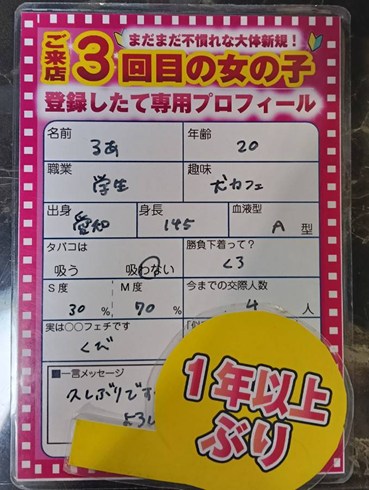 まだまだ不慣れな大体新規！
ご来店3回目の女の子
登録したて専用プロフィール
名前 るあ 年齢 20
職業 学生 趣味 犬カフェ
出身 愛知 身長 145 血液型 A 型
タバコは 吸う 吸わない 勝負下着って？ くろ
S度 30 % M度 70 % 今までの交際人数 4 人
実は○○フェチです くび
■一言メッセージ
久しぶりです
よろし
1年以上
ぶり